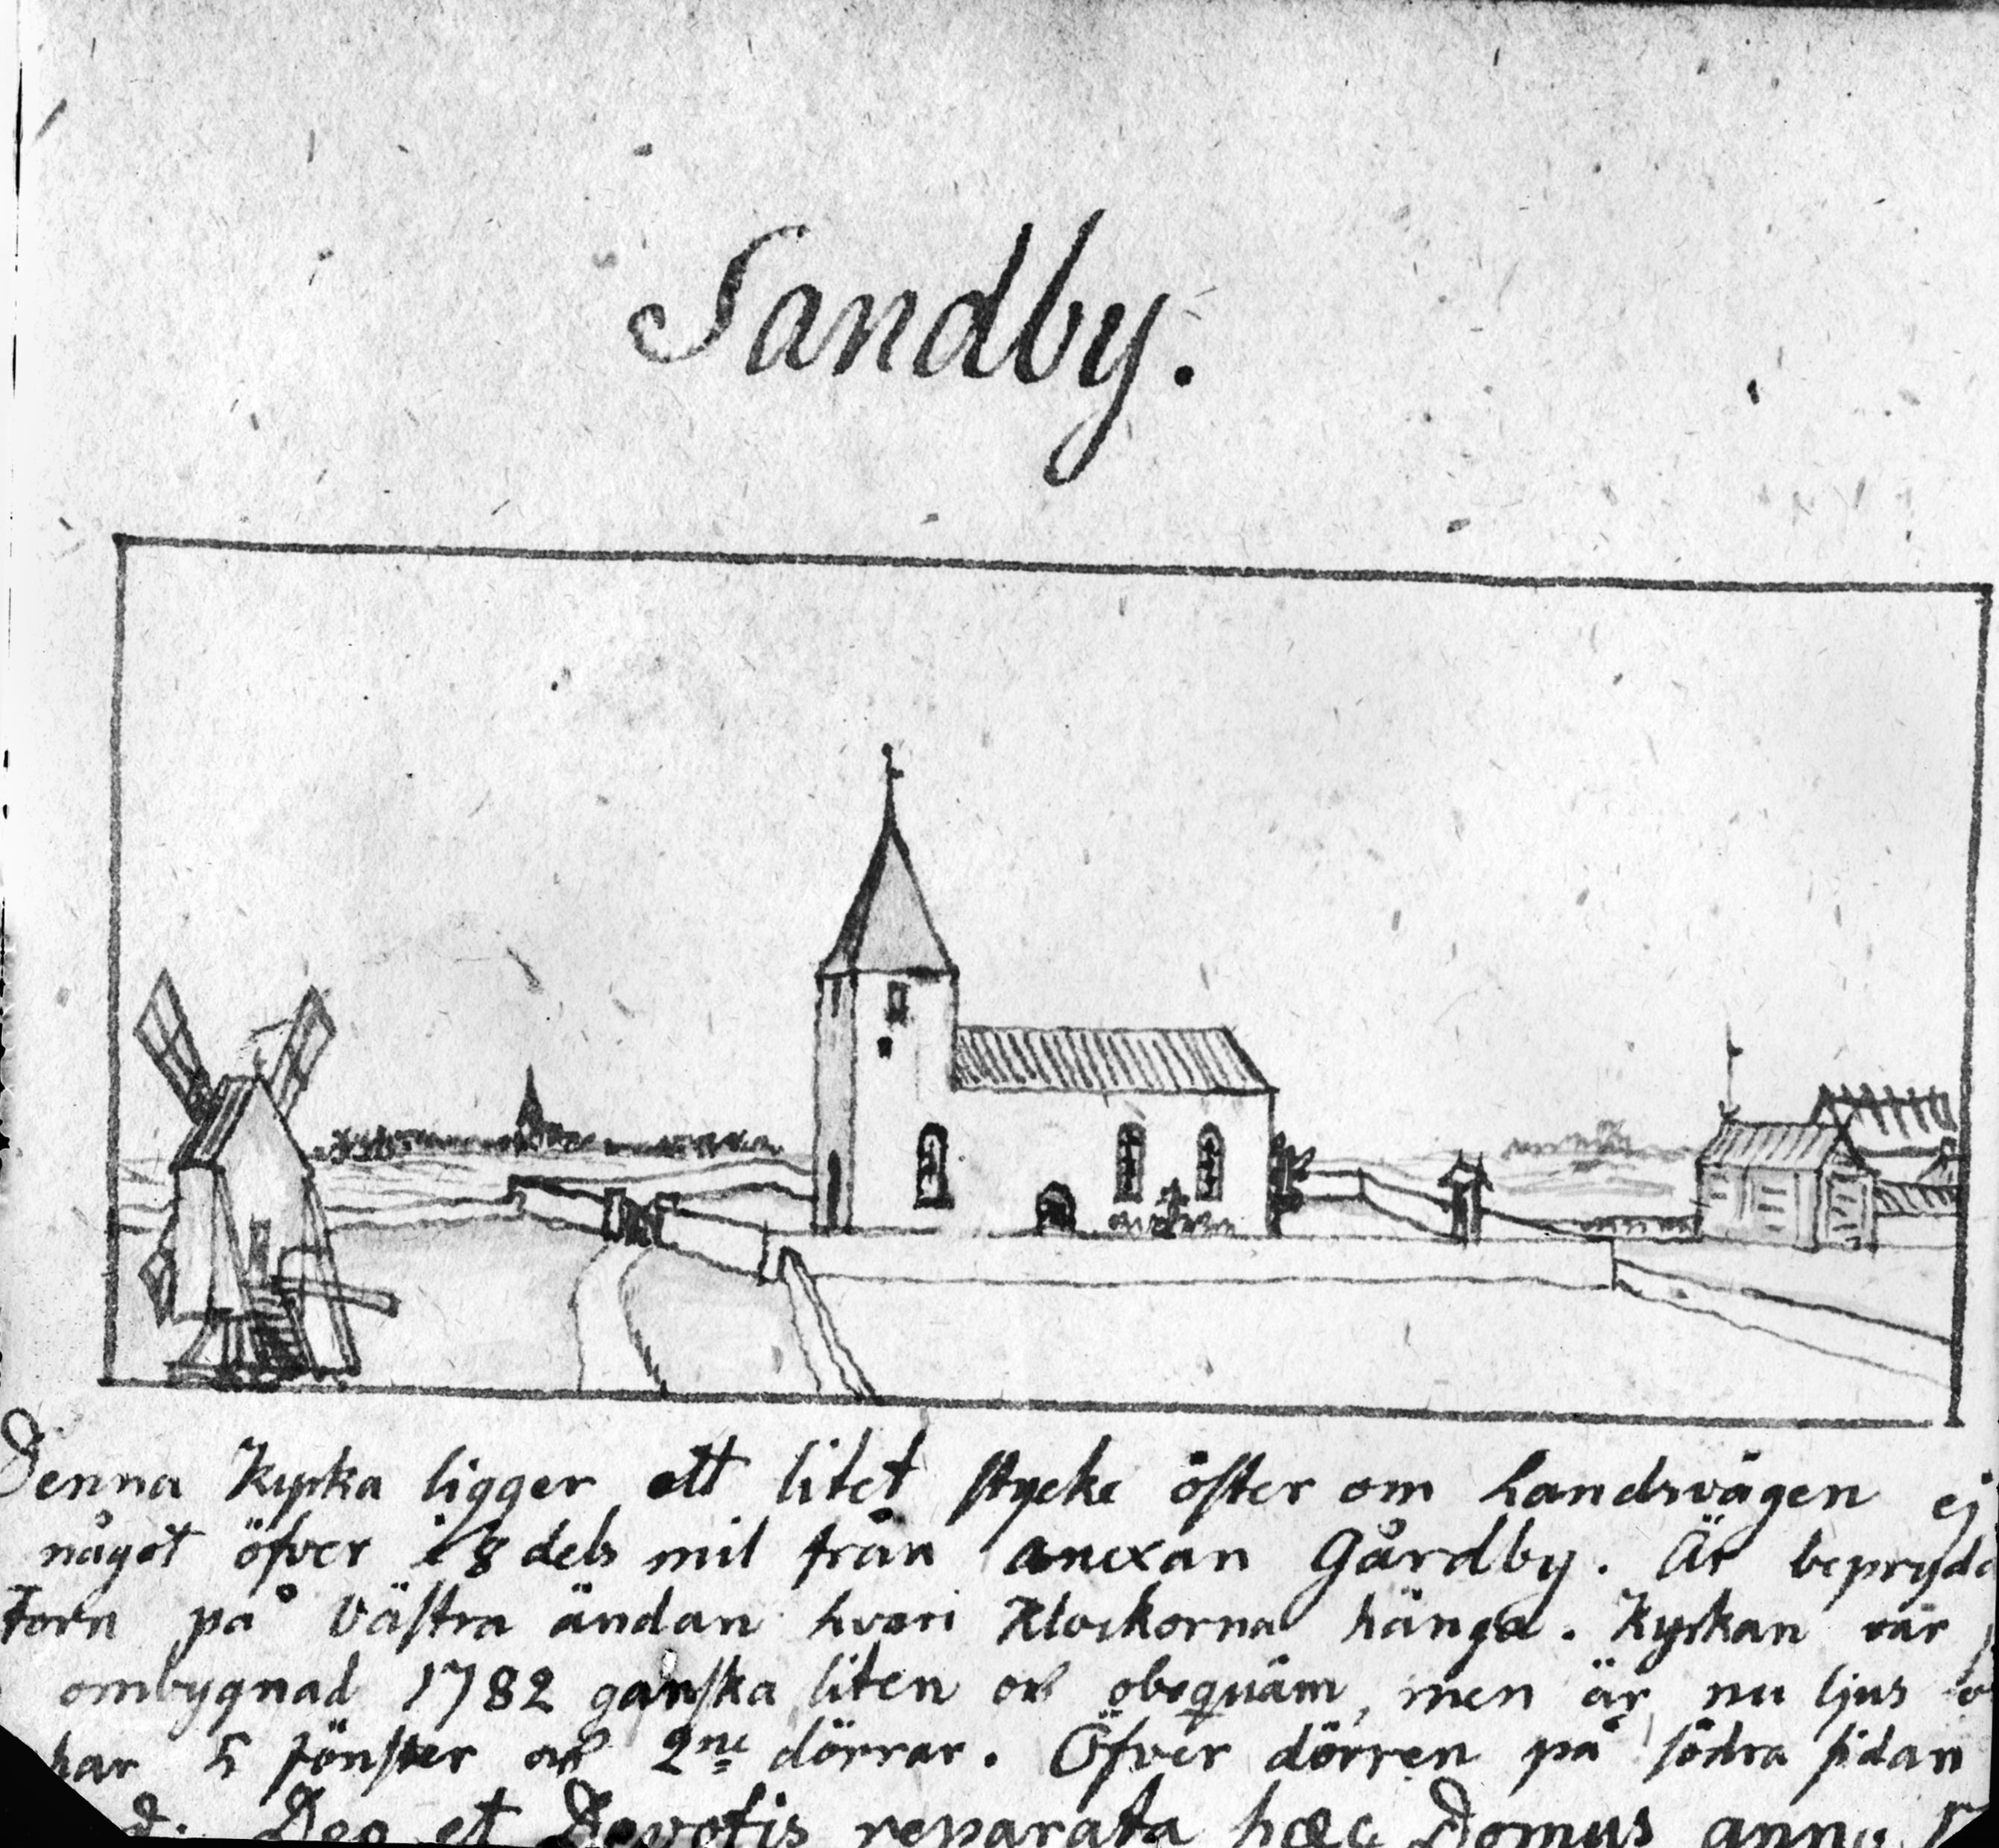 Sandby.
Denna Kyrka ligger ett litet stycke öster om Landsvägen ej
något öfver 1/8 dels mil från anexan Gårdby. Är beprydd
torn på Västra ändan hvari Klockorna hänga. Kyrkan var
ombygnad 1782 ganska liten och obequäm, men är nu ljus
har 5 fönster och 2ne dörrar. Öfver dörren på södra sidan
d. Deo et Devotis reparata hæc Domus anno